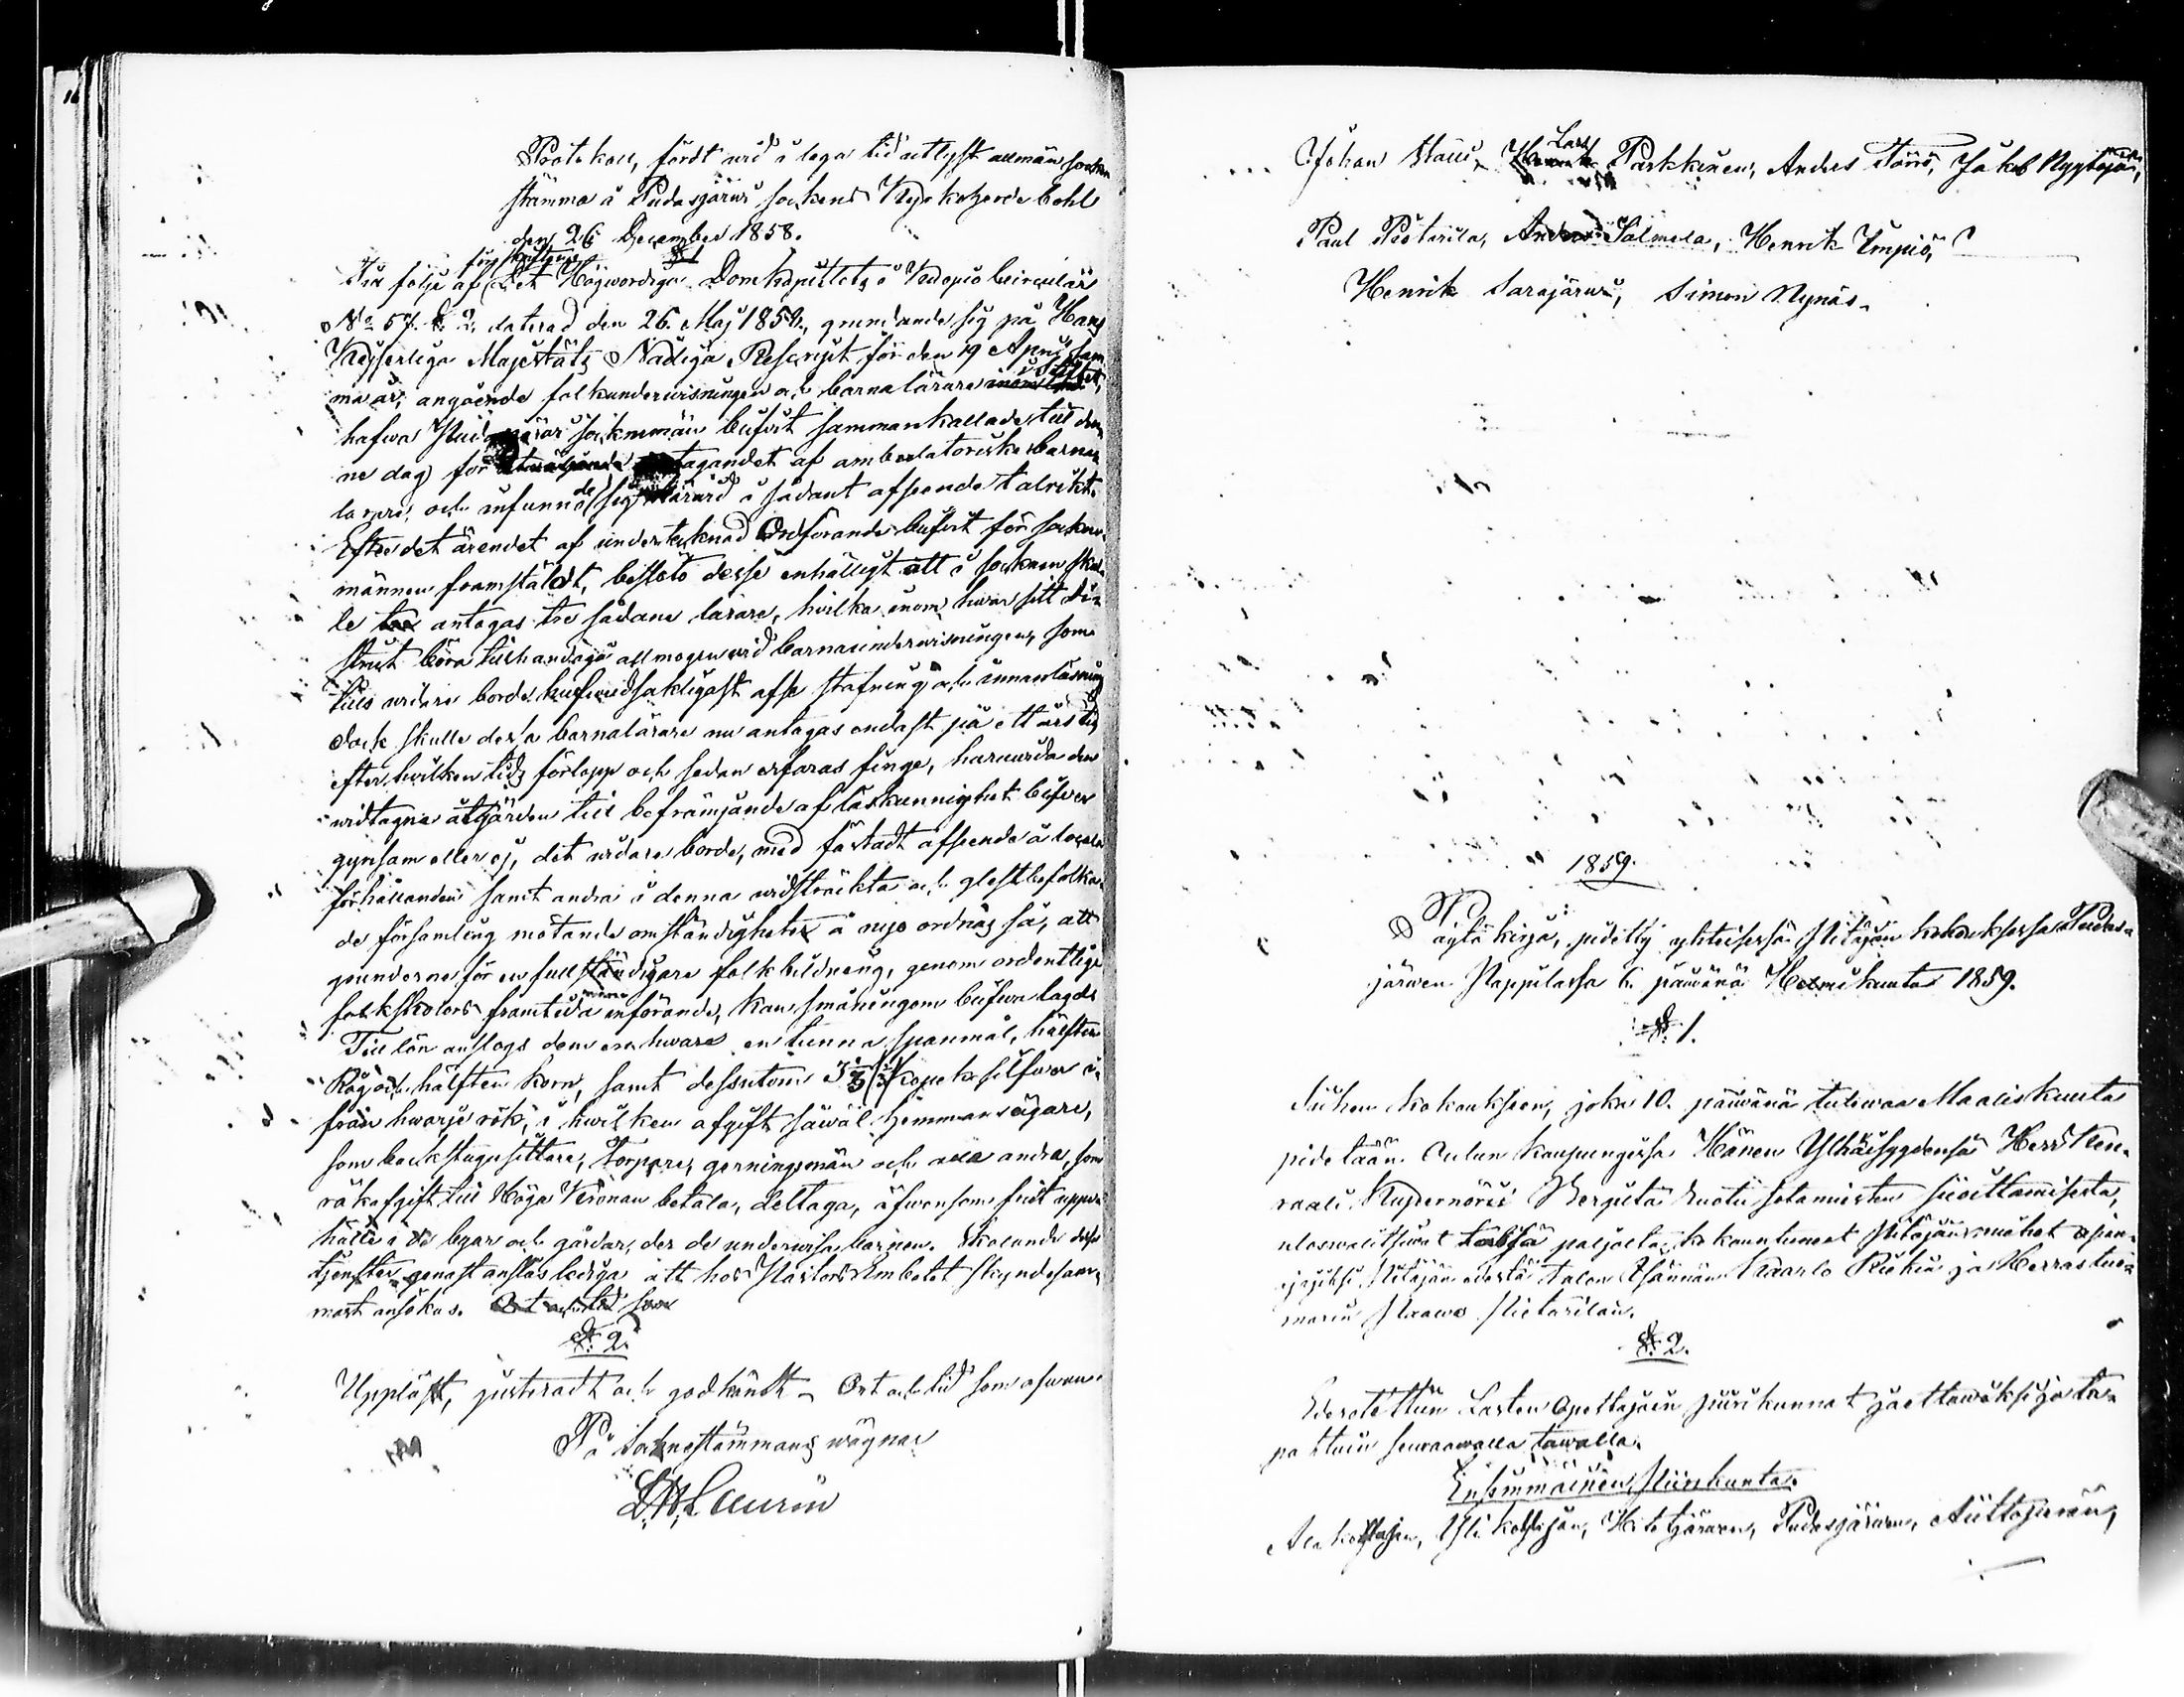 Protokoll, fördt wid i laga tid utlyst allmän socken
stämma i Pudasjärwi sockens Kyrkoherde bohl
den 26 December 1858.
§ 1
Till följe af Det Högwördiga Domkapitlets i Kuopio circulär
No 57. § 2. daterad den 26. Maj 1858, grundande sig på Hans
Kejserliga Majestäts Nådiga Rescript för den 19 April sam-
ma år, angående folkunderwisningen och barnalärare i Stiftet,
hafwa Pudasjärwi socknemän blifwit sammankallade till den-
ne dag för antagandet af ambulatoriska barna-
lärare, och infunno de sig i sådant afseende talrikt.
Efter det ärendet af undertecknad Ordförande blifwit för socken-
männen framstäldt, beslöto desse enhälligt att i socknen skul-
le antagas tre sådane lärare, hvilka inom hwar sitt di-
strict böra tillhandagå allmogen wid barnaunderwisningen, som
tills widare borde hufwudsakligast afse stafning och innanläsning
dock skulle dessa barnalärare nu antagas endast på ett års tid
efter hwilken tids förlopp och sedan erfaras finge, huruwida den
widtagna åtgärden till befrämjande af läskunnighet blifwer
gynsam eller ej, det widare borde, med fästadt afseende å locala
förhållanden samt andra i denna widsträckta och glest befolka-
de församling mötande omständigheter å nyo ordnas så, att
grunderne för en fullständigare folkbildning, genom ordentlige
folkskolors framtida införande, kan småningom blifwa lagde
Till lön anslogs dem en hware en tunna spanmål, hälften
Råg och hälften Korn, samt dessutom 3 1/3 kopek silfwer i
från hwarje rök, i hwilken afgift såwäl hemmansägare,
som backstugusittare, torpare, gerningsmän och alla andra, som
rökafgift till Höga Kronan betala, deltaga, äfwensom fritt uppe-
hälle i de byar och gårdar, der de underwisa barnen. Skolande desse
tjenster genast anslås lediga att hos Pastors Embetet skyndesam-
mast ansökas.
§. 2.
Uppläst, justeradt och godkändt. Ort och tid som ofwan
På Socknestämmans wägnar
Laurin
Johan Lars Parkkinen, Anders Törrö, Jakob
Paul Pietarila, Salmela, Henrik Impiö,
Henrik Sarajärwi, Simon Nynäs.
1859.
Pöytäkirja, pidetty yhteisessä Pitäjän kokouksessa Pudas-
järwen Pappilassa 6. päiwänä Helmikuuta 1859.
§. 1.
Siihen kokoukseen, joka 10. päiwänä tulewaa Maaliskuuta
pidetään Oulun kaupungissa Hänen Ylhäisyydensä Herr Ken-
raali Kupernöörin Ruotu sotamiesten
uloswalitsiwat tässä paljolta kokoontuneet Pitäjän miehet
Pitäjän edestä talon Isännän Kaarlo ja Herrastuo-
marin Paawo Pietarilan.
§. 2.
Edesotettiin Lasten Opettajain piirikunnat jaettawaksi ja ta-
pahtui seuraawalla tawalla.
Ensimmäinen Piirikunta.
Ala kollajan, Yli kollajan, Hetejärwen, Pudasjärwen, Aittojärwen,